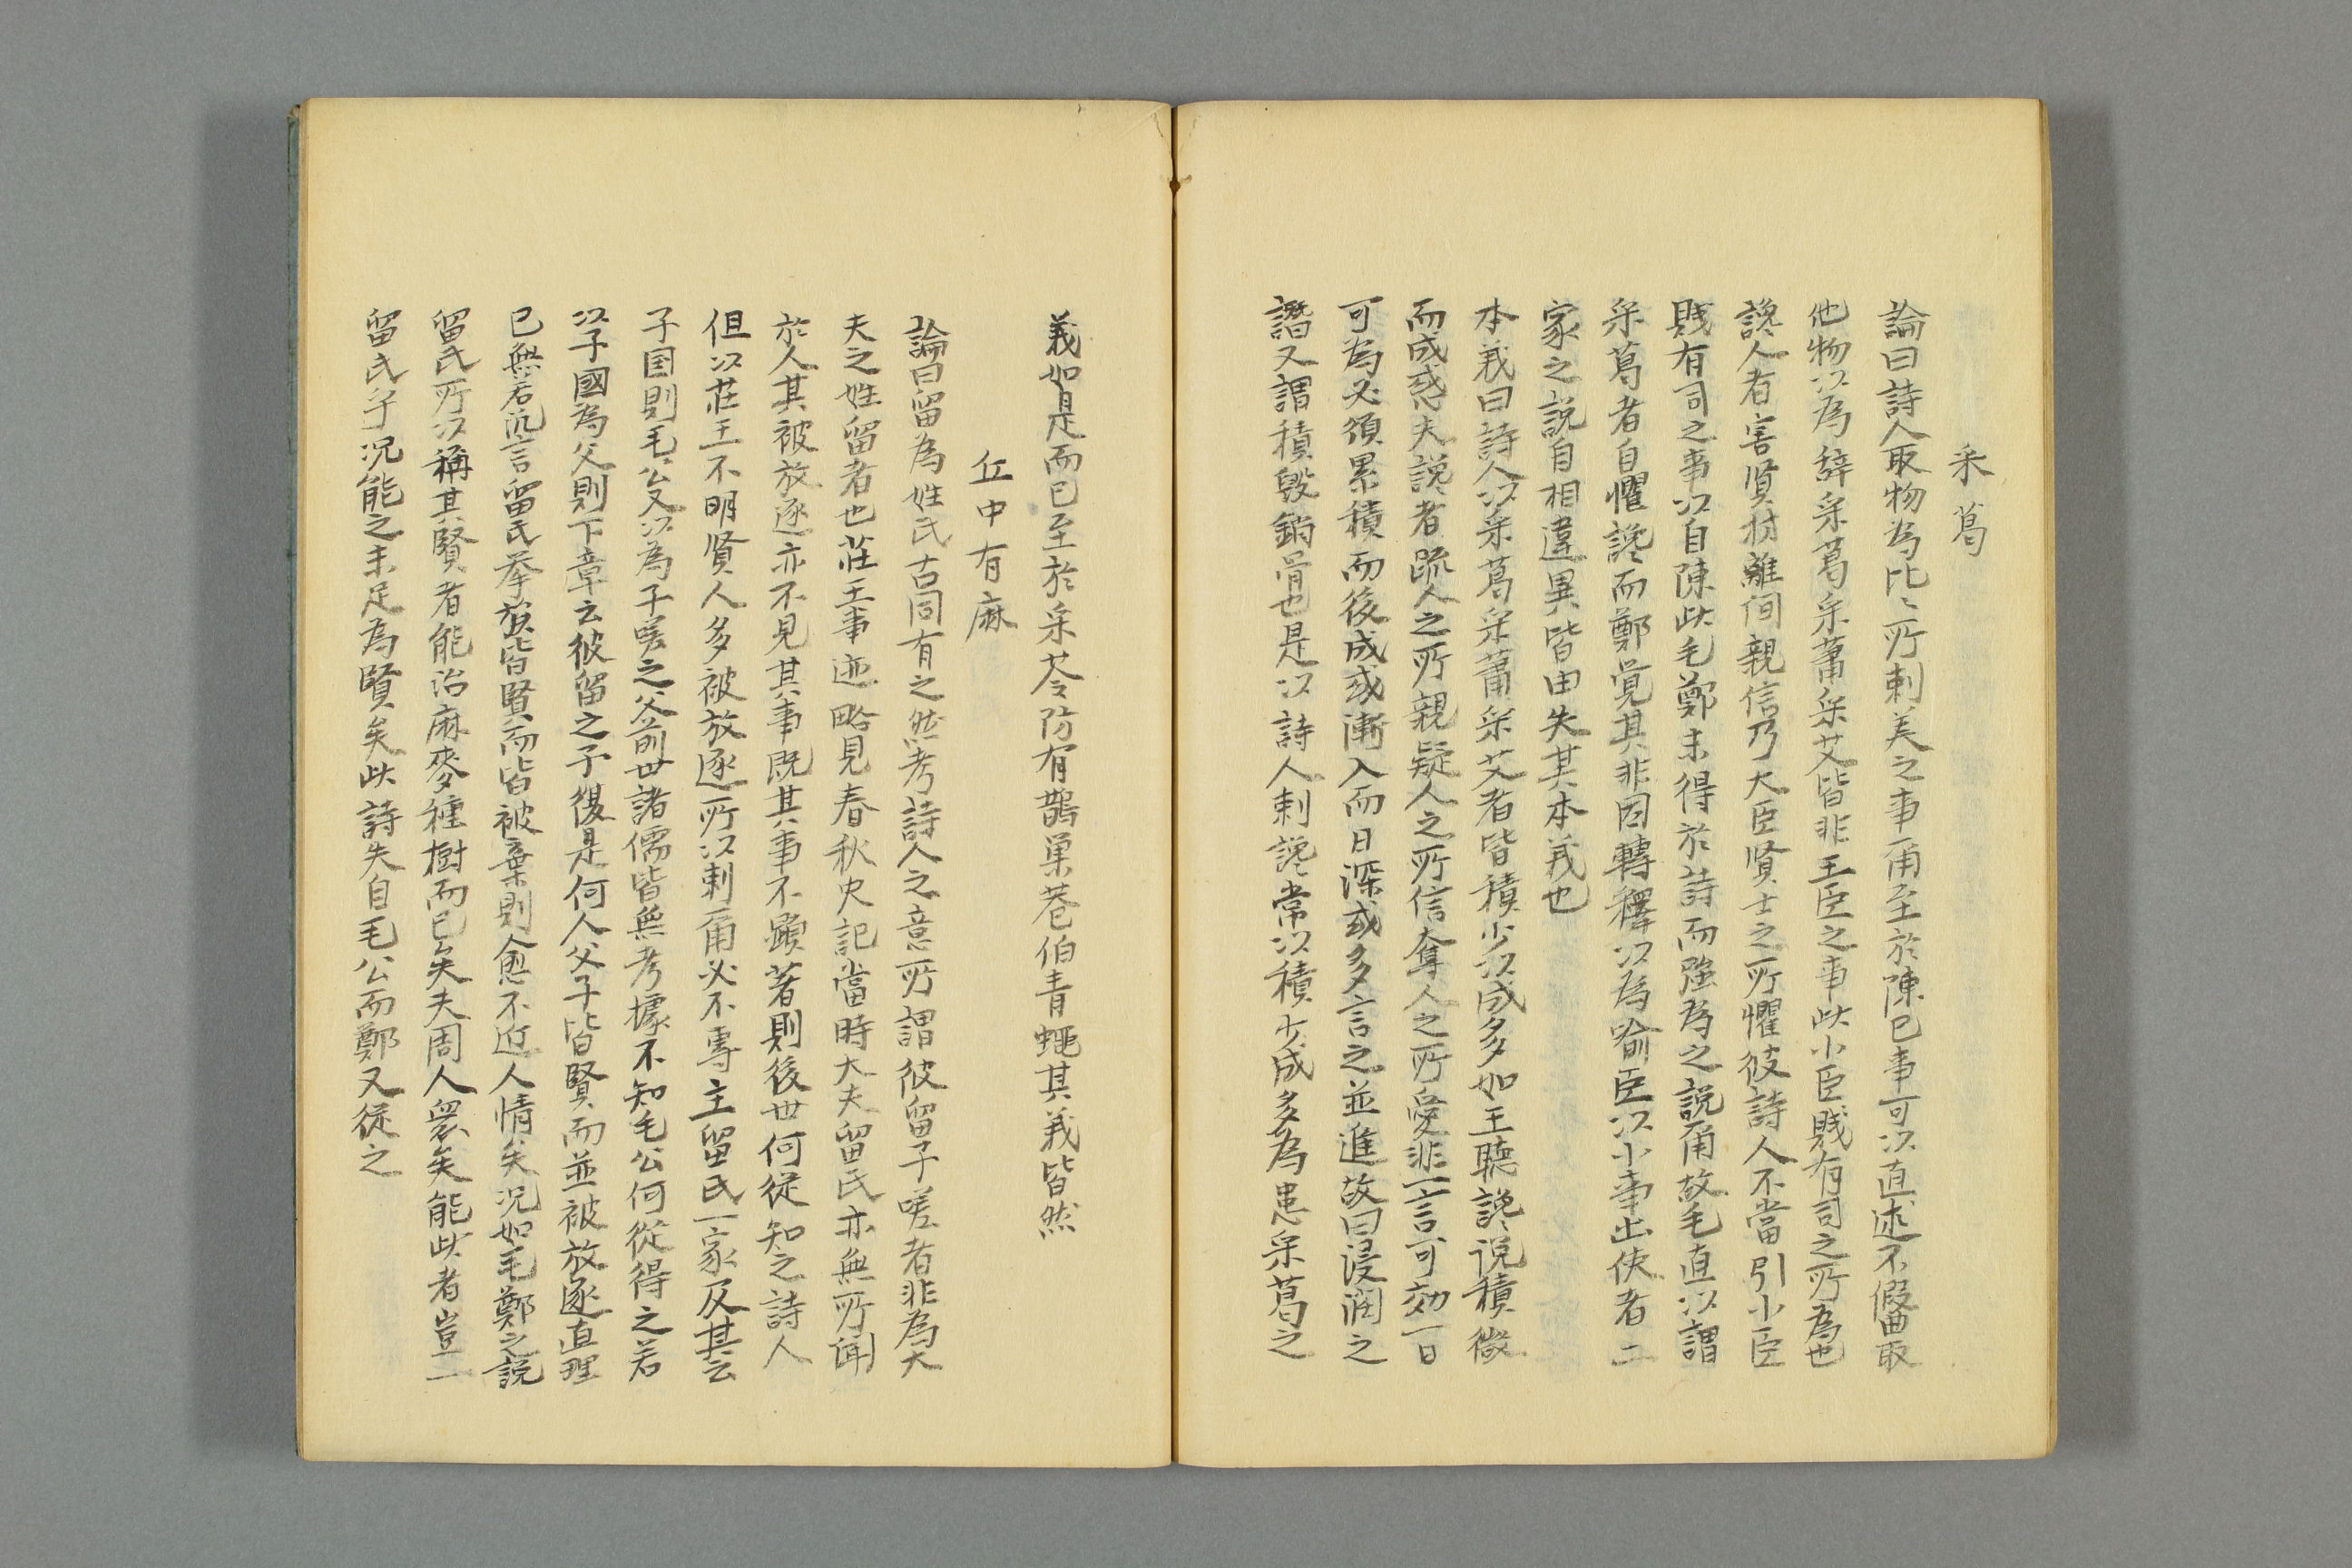 采葛
論曰詩人取物為比〻所刺美之事甬至於陳已事可以直述不假曲取
他物以為辞采葛采蕭采艾皆非王臣之事此小臣賎有司之所為也
讒人者害賢材離間親信乃大臣賢士之所懼彼詩人不當引小臣
賎有司之事以自陳此毛鄭未得於詩而強為之說甬故毛直以謂
采葛者自懼讒而鄭覚其非因轉釋以為喻臣以小事出使者二
家之說自相違異皆由失其本義也
本義曰詩人以采葛采蕭采艾者皆積少以成多如王聽讒说積微
而成惑夫讒者疏人之所親疑人之所信奪人之所愛非一言可効一日
可為必須累積而後成或漸入而日深或多言之並進故曰浸潤之
譖又謂積毀銷骨也是以詩人刺讒常以積少成多為患采葛之
義如是而已至於采苓防有鵲巢巷伯青蠅其義皆然
丘中有麻
論曰留為姓氏古固有之然考詩人之意所謂彼留子嗟者非為大
夫之姓留者也莊王事迹略見春秋史記當時大夫留氏亦無所聞
於人其被放逐亦不見其事既其事不顕著則後世何従知之詩人
但以莊王不明賢人多被放逐所以刺甬必不專主留氏一家及其云
子国則毛公又以為子嗟之父前世諸儒皆無考據不知毛公何從得之若
以子國為父則下章云彼留之子復是何人父子皆賢而並被放逐直理
已無若汎言留氏挙族皆賢而皆被棄則愈不近人情矣况如毛鄭之說
留氏所以稱其賢者能治麻麥種樹而已矣夫周人衆矣能此者豈一
留氏乎况能之未足為賢矣此詩失自毛公而鄭又従之